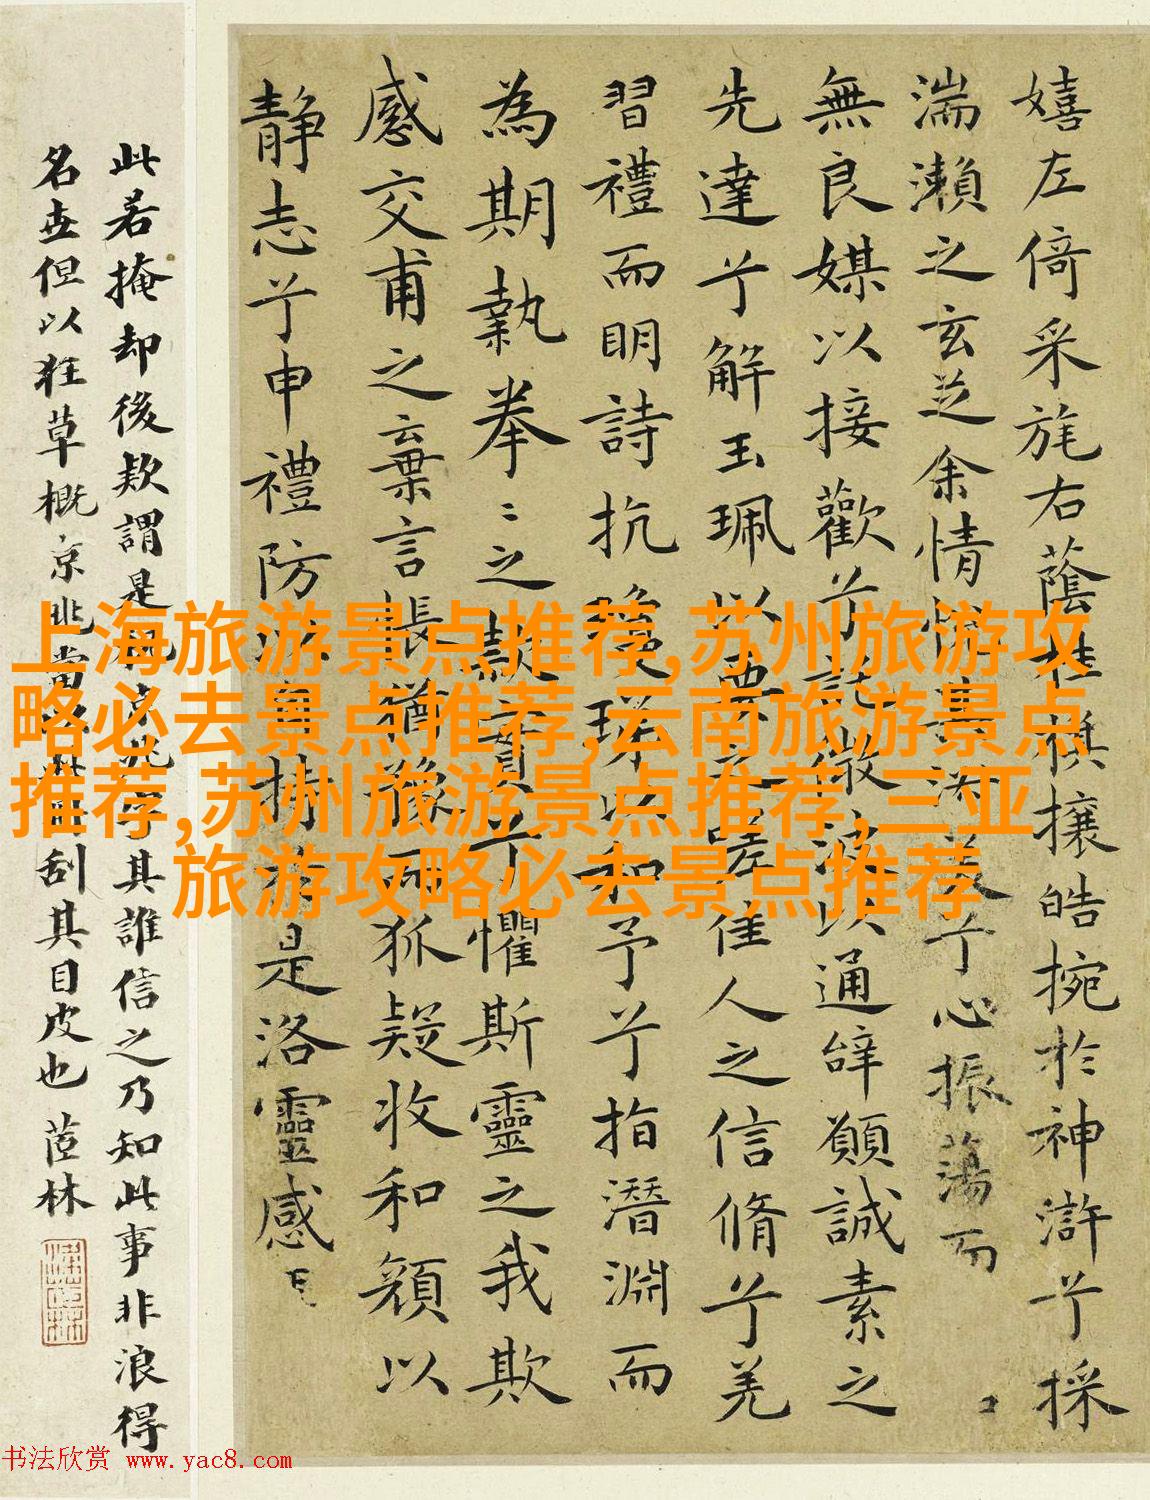 嬉左倚采旄右蔭桂棋攘皓捥於神滸兮採
湍瀨之玄芝余情悅其淑美兮心振蕩而
無良媒以接歡兮託微波以通辭願誠素之
先達兮解玉珮以要之嗟佳人之信脩兮羌
習禮而明詩抗瓊珶以和予兮指潛淵而
為期執拳〻之款實兮懼斯靈之我欺
感交甫之棄言悵猶豫而狐疑收和顏以
静志兮申禮防以自持於是洛靈感
此若掩却後欵謂是京兆其誰信之乃知此事非浪得
名世但以狂草概京兆當刮其目皮也 茝林
上海旅游景点推荐,苏州旅游攻
略必去景点推荐,云南旅游景点
推荐,苏州旅游景点推荐,三亚
旅游攻略必去景点推荐
书法欣赏 www.yac8.com